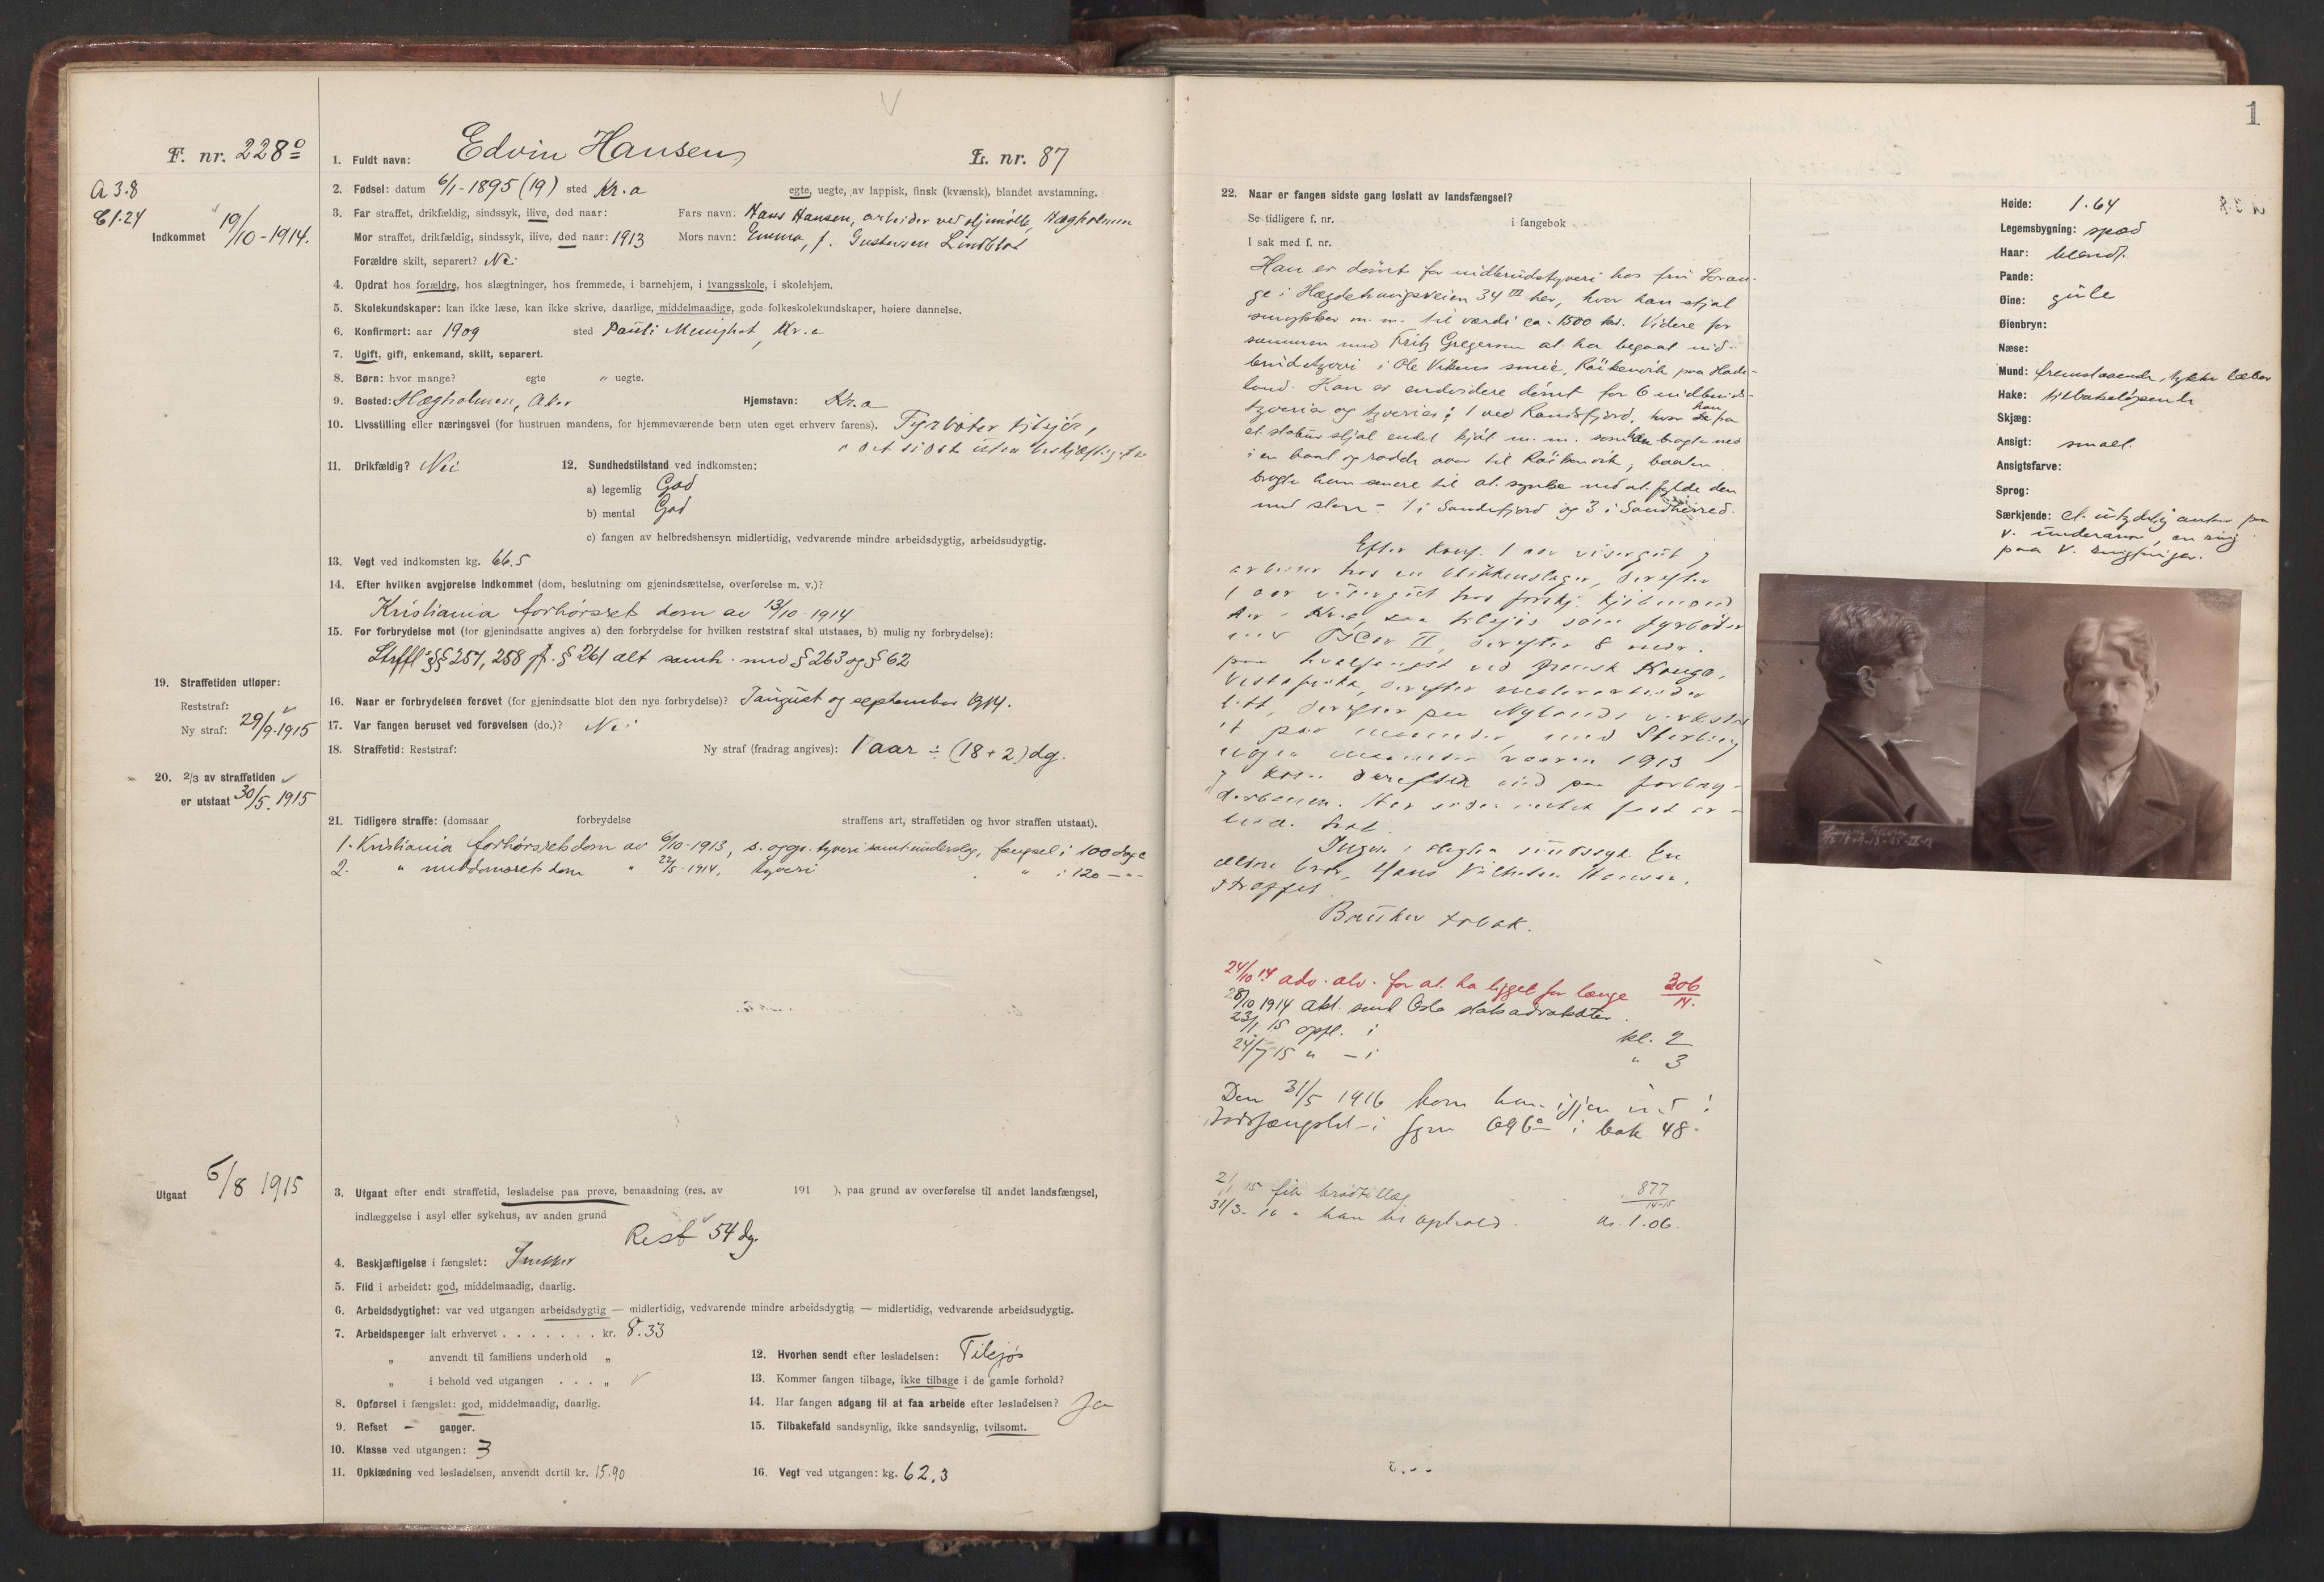 F. nr. 228º
A 3.8
C 1.24
Indkommet 19/10-1914.
1. Fuldt navn: Edvin Hansen
L. nr. 87
2. Fødsel: datum 6/1-1895 (19) sted Kr.a egte, uegte, av lappisk, finsk (kvænsk), blandet avstamning.
3. Far straffet, drikfældig, sindssyk, ilive, død naar: Fars navn: Hans Hansen, arbeider ved oljemølle, Hægholmen
Mor straffet, drikfældig, sindssyk, ilive, død naar: 1913 Mors navn: Emma, f. Gustavsen
Forældre skilt, separert? Nei
4. Opdrat hos forældre, hos slægtninger, hos fremmede, i barnehjem, i tvangsskole, i skolehjem.
5. Skolekundskaper: kan ikke læse, kan ikke skrive, daarlige, middelmaadige, gode folkeskolekundskaper, høiere dannelse.
6. Konfirmert: aar 1909 sted Pauli Menighet, Kr.a
7. Ugift, gift, enkemand, skilt, separert.
8. Børn: hvor mange? egte " uegte.
9. Bosted: Hægholmen, Aker Hjemstavn: Kr.a
10. Livsstilling eller næringsvei (for hustruen mandens, for hjemmeværende børn uten eget erhverv farens). Fyrbøter tilsjøs,
det sidste uten beskjæftigelse
11. Drikfældig? Nei 12. Sundhedstilstand ved indkomsten:
a) legemlig God
b) mental God
c) fangen av helbredshensyn midlertidig, vedvarende mindre arbeidsdygtig, arbeidsudygtig.
13. Vegt ved indkomsten kg. 66.5
14. Efter hvilken avgjørelse indkommet (dom, beslutning om gjenindsættelse, overførelse m. v.)?
Kristiania forhørsret dom av 13/10-1914
15. For forbrydelse mot (for gjenindsatte angives a) den forbrydelse for hvilken reststraf skal utstaaes, b) mulig ny forbrydelse):
Strffl. §§ 257, 258 jfr. § 261 alt samh. med § 263 og § 62
16. Naar er forbrydelsen forøvet (for gjenindsatte blot den nye forbrydelse)? I august og september 1914.
17. Var fangen beruset ved forøvelsen (do.)? Nei
18. Straffetid: Reststraf: Ny straf (fradrag angives): 1 aar ÷ (18 + 2) dg.
19. Straffetiden utløper:
Reststraf:
Ny straf: 29/9-1915
20. 2/3 av straffetiden
er utstaat 30/5. 1915
21. Tidligere straffe: (domsaar forbrydelse straffens art, straffetiden og hvor straffen utstaat).
1. Kristiania forhørsretsdom av 6/10-1913, s. opgr. tyveri samt underslag, fængsel i 100 dage
2. " meddomsrets dom " 22/5-1914, tyveri " i 120 - " -
Utgaat 5/8 1915
3. Utgaat efter endt straffetid, løsladelse paa prøve, benaadning (res. av 191 ), paa grund av overførelse til andet landsfængsel,
indlæggelse i asyl eller sykehus, av anden grund
Rest 54 dg.
4. Beskjæftigelse i fængslet: Snekker
5. Flid i arbeidet: god, middelmaadig, daarlig.
6. Arbeidsdygtighet: var ved utgangen arbeidsdygtig — midlertidig, vedvarende mindre arbeidsdygtig — midlertidig, vedvarende arbeidsudygtig.
7. Arbeidspenger ialt erhvervet . . . . . . . kr. 8.33
" anvendt til familiens underhold "
" i behold ved utgangen . . . "
8. Opførsel i fængslet: god, middelmaadig, daarlig.
9. Refset – ganger.
10. Klasse ved utgangen: 3
11. Opklædning ved løsladelsen, anvendt dertil kr. 15.90
12. Hvorhen sendt efter løsladelsen: Tilsjøs
13. Kommer fangen tilbage, ikke tilbage i de gamle forhold?
14. Har fangen adgang til at faa arbeide efter løsladelsen? Ja
15. Tilbakefald sandsynlig, ikke sandsynlig, tvilsomt.
16. Vegt ved utgangen: kg. 62.3
1
22. Naar er fangen sidste gang løslatt av landsfængsel?
Se tidligere f. nr. i fangebok
I sak med f. nr.
Han er dømt for indbrudstyveri hos fru Soran-
ge i Hægdehaugsveien 34 III her, hvor han stjal
smykker m. m. til værdi ca. 1500 kr. Videre for
sammen med Fritz Gregersen at ha begaat ind-
brudstyveri i Ole Vikens smie, Røikenvik paa Hade-
land. Han er endvidere dømt for 6 indbruds-
tyverier og tyverier; 1 ved Randsfjord, hvor han fra
et stabur stjal endel kjøt m. m. som han bragte ned
i en baat og rodde over til Røikenvik, baaten
bragte han senere til at synke ved at fylde den
med sten - 1 i Sandefjord og 3 i Sandeherred.
Efter konf. 1 aar visergut,
arbeider hos en blikkenslager, derefter
1 aar visergut hos forskj. kjøbmænd
her i Kr.a, saa tilsjøs som fyrbøter
med Oscar II, derefter 8 mdr.
paa hvalfangst ved fransk Kongo,
Vestafrika, derefter malerarbeider
litt, derefter paa Nylands verksted
et par maaneder, med Sterling
nogen maaneder vaaren 1913
og kom derefter ind paa forbry-
derbanen. Har siden intet fast ar-
beid hat.
Ingen i slegten sindssyk. En
ældre bror, Hans Vilhelm Hansen,
straffet.
Bruker tobak.
24/10 14 adv. alv. for at ha ligget for længe 306/14.
28/10 1914 akt. send Oslo statsadvokater.
23/1 15 opfl. i kl. 2
24/7 15 " - i " 3
Den 31/5 1916 kom han igjen ind i
landsfængslet i fgnr 696º i bok 48.
2/1 15 fik brødtillæg 877/14-15
31/3- 16 " han til ophold kr. 1.06.
Høide: 1.64
Legemsbygning: spæd
Haar: blondt.
Pande:
Øine: gule
Øienbryn:
Næse:
Mund: fremstaaende, tykke læber
Hake: tilbakeløpende
Skjæg:
Ansigt: smalt.
Ansigtsfarve:
Sprog:
Særkjende: et utydelig anker paa
v. underarm, en ring
paa v. ringfinger.